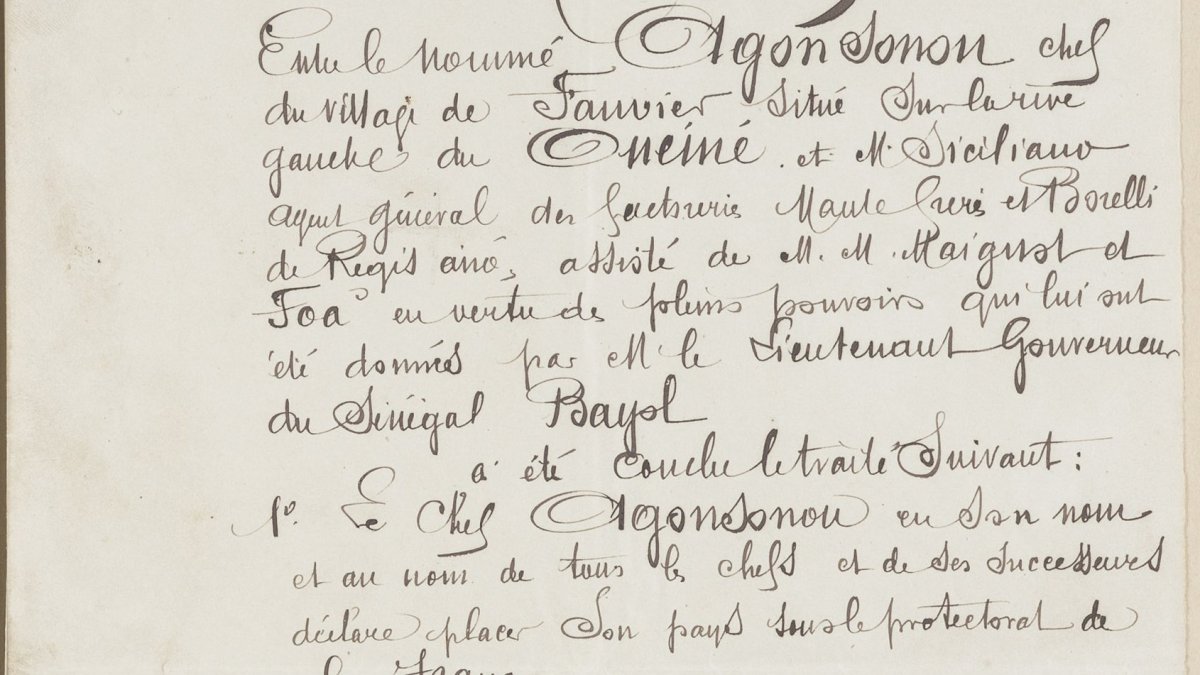 Entre le nommé Agonsonou chef
du village de Fanvier situé sur la rive
gauche du Onémé. et M. Siciliano
agent général des factoreries Mante frères et Borelli
de Régis aîné, assisté de M. M. Maignot et
Foa en vertu des pleins pouvoirs qui lui ont
été donnés par M le Lieutenant Gouverneur
du Sénégal Bayol
a été conclu le traité suivant :
1º. Le Chef Agonsonou en son nom
et au nom de tous les chefs et de ses successeurs
déclare placer son pays sous le protectorat de
la France